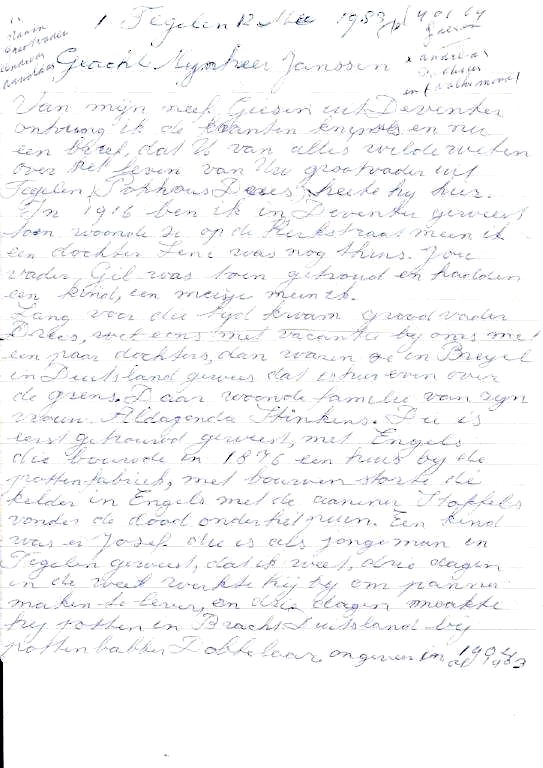 1 Tegelen 12 Mei 1983
naam
Grootvader
Andreas
Geacht Mynheer Janssen
x andreas
en
Van mijn neef Giesen uit Deventer
ontving ik de kranten knipsels en nu
een brief, dat U van alles wilde weten
over het leven van Uw grootvader uit
Tegelen, Dries, heete hij hier.
In 1916 ben ik in Deventer geweest
toen woonde ze op de Kerkstraat meen ik
een dochter Lene was nog thuis. Jou
vader, Gil was toen getrouwd en hadden
een kind, een meisje meen ik.
Lang voor die tyd kwam groodvader
Dries, wel eens met vacantie by ons met
een paar dochters, dan waren ze in Breyel
in Duitsland gewees dat is hier even over
de grens. Daar woonde familie van zyn
vrouw. Aldagonda Stinkens. Die is
eerst getrouwd geweest, met Engels
die bouwde in 1876 een huis by de
pottenfabriek, met bouwen storte de
kelder in Engels met de aanemer Stoffels
vonden de dood onder het puin. Een kind
was er Josef die is als jongeman in
Tegelen geweest, dat ik weet, drie dagen
in de week werkte hij by om pannen
maken te leren, en drie dagen maakte
hy potten in Bracht Duitsland bij
pottenbakker Dobbelaar, ongeveer in 1904